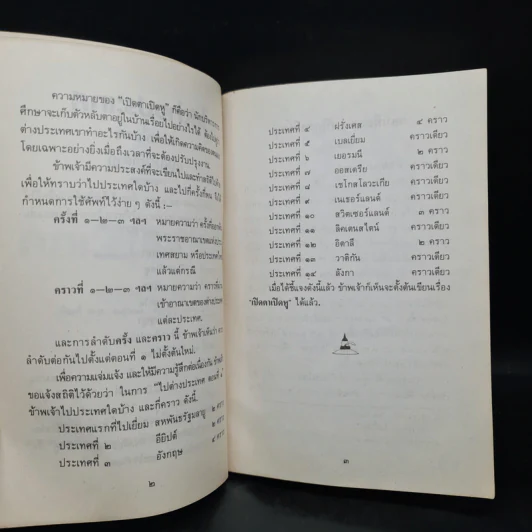 ความหมายของ "เปิดตาเปิดหู" ก็คือว่า
ศึกษาจะเก็บตัวหลับตาอยู่ในบ้านเรื่อยไปอย่างไรได้
ต่างประเทศเขาทำอะไรกันบ้าง เพื่อให้เกิดความคิด
โดยเฉพาะอย่างยิ่งเมื่อถึงเวลาที่จะต้องปรับปรุงงาน
ข้าพเจ้ามีความประสงค์ที่จะเขียนไปและทำสถิติไปด้วย
เพื่อให้ทราบว่าไปประเทศใดบ้าง และไปกี่ครั้งกี่หน
กำหนดการใช้ศัพท์ไว้ง่าย ๆ ดังนี้ :—
ครั้งที่ ๑—๒—๓ ฯลฯ หมายความว่า ครั้งที่
พระราชอาณาเขต
เทศสยาม หรือประเทศไทย
แล้วแต่กรณี
คราวที่ ๑—๒—๓ ฯลฯ หมายความว่า คราวที่
เข้าอาณาเขตของต่างประเทศ
แต่ละประเทศ.
และการลำดับครั้ง และคราว นี้ ข้าพเจ้าเห็นว่า
ลำดับต่อกันไปตั้งแต่ตอนที่ ๑ ไม่ตั้งต้นใหม่.
เพื่อความแจ่มแจ้ง และให้มีความรู้สึกต่อเนื่องกัน
ขอแจ้งสถิติไว้ด้วยว่า ในการ "ไปต่างประเทศ ตอนที่ ๑"
ข้าพเจ้าไปประเทศใดบ้าง และกี่คราว ดังนี้.
ประเทศแรกที่ไปเยี่ยม สหพันธรัฐมลายู ๒ คราว
ประเทศที่ ๒ อียิปต์ ๒ คราว
ประเทศที่ ๓ อังกฤษ ๔ คราว
๒
ประเทศที่ ๔ ฝรั่งเศส ๔ คราว
ประเทศที่ ๕ เบลเยี่ยม คราวเดียว
ประเทศที่ ๖ เยอรมนี ๒ คราว
ประเทศที่ ๗ ออสเตรีย คราวเดียว
ประเทศที่ ๘ เชโกสโลวะเกีย คราวเดียว
ประเทศที่ ๙ เนเธอร์แลนด์ คราวเดียว
ประเทศที่ ๑๐ สวิตเซอร์แลนด์ ๓ คราว
ประเทศที่ ๑๑ ลิคเตนสไตน์ คราวเดียว
ประเทศที่ ๑๒ อิตาลี ๒ คราว
ประเทศที่ ๑๓ วาติกัน คราวเดียว
ประเทศที่ ๑๔ ลังกา คราวเดียว
เมื่อได้ชี้แจงดังนี้แล้ว ข้าพเจ้าก็เห็นจะตั้งต้นเขียนเรื่อง
"เปิดตาเปิดหู" ได้แล้ว.
๓